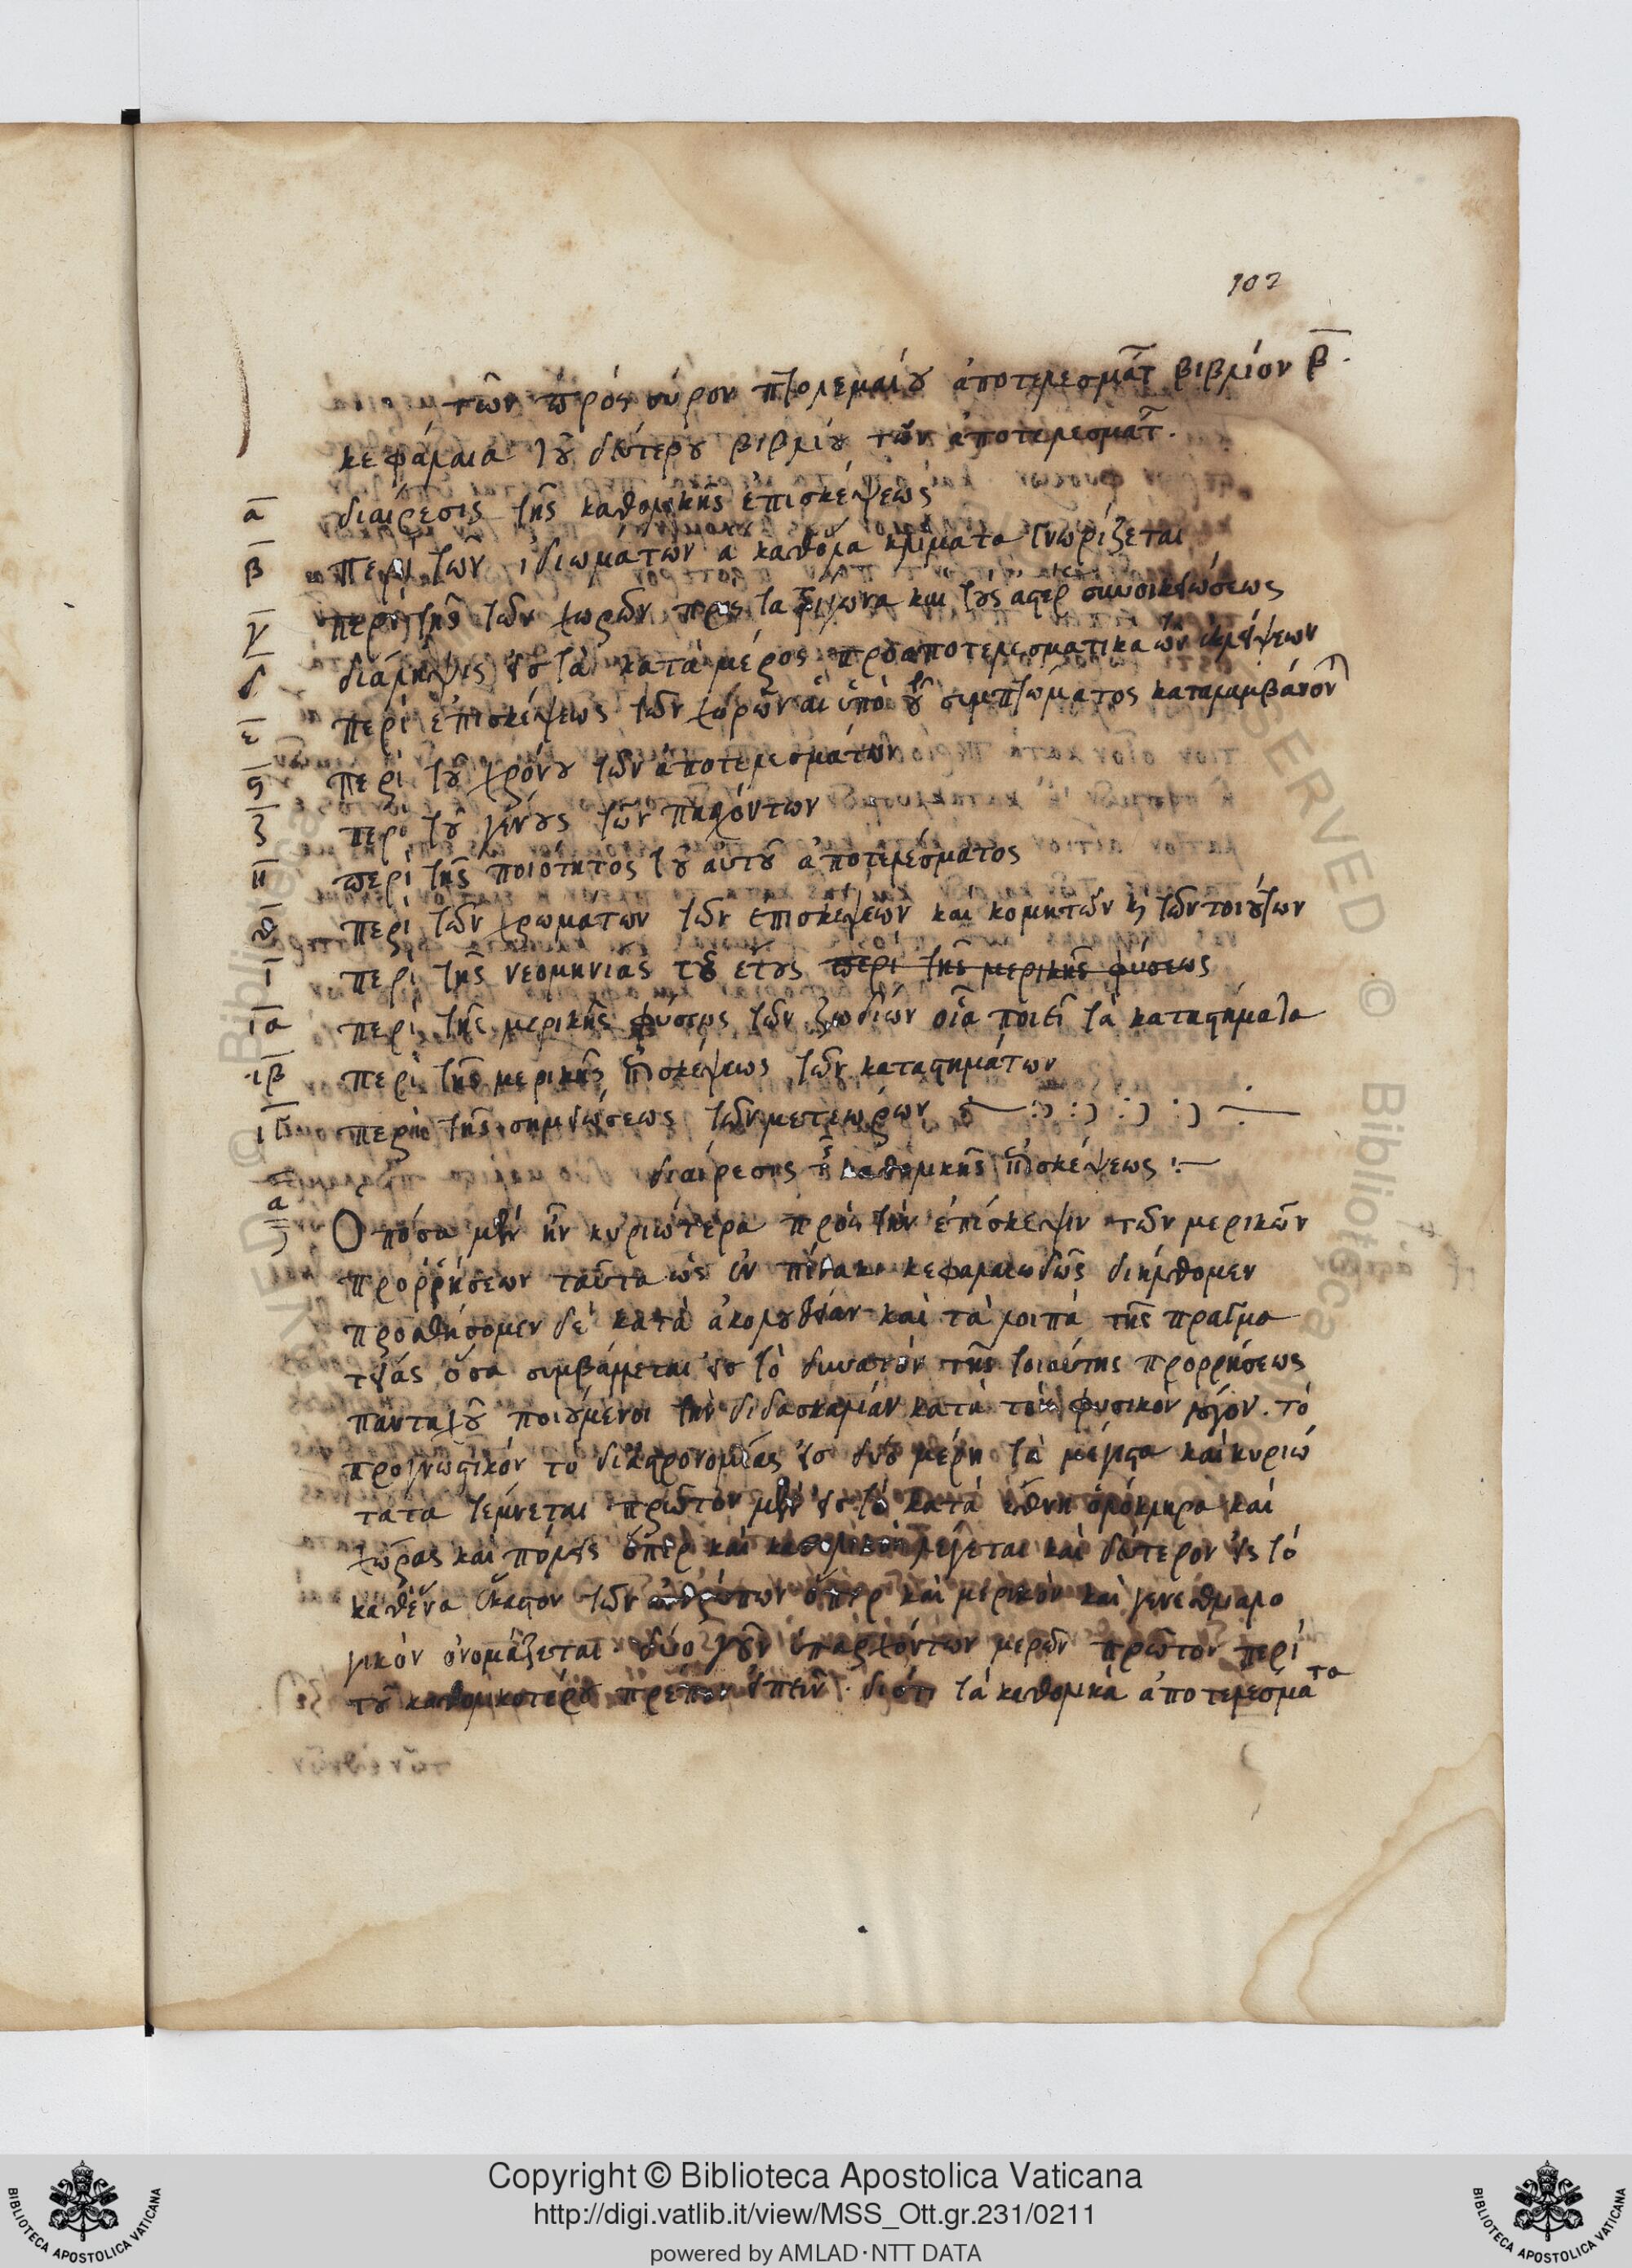 102
τῶν πρὸς σύρον πτολεμαίου ἀποτελεσμάτ βιβλίον β.
κεφάλαια τοῦ δευτέρου βιβλίου τῶν ἀποτελεσμάτ.
α διαίρεσις τῆς καθολικῆς ἐπισκέψεως
β περὶ τῶν ἰδιωμάτων α καθόλα κλίματα γνωρίζεται
γ περὶ τῆς τῶν χωρῶν πρὸς τα τρίγωνα και τους αστερ συνοικειώσεως
δ διάληψις εἰς τὰ κατὰ μέρος προαποτελεσματικα
ε περὶ ἐπισκέψεως τῶν χόρῶν αἱ ὑπὸ τοῦ συμπτώματος καταλαμβάνον
ς περὶ του χρόνου τῶν ἀποτελεσμάτων
ζ περὶ τοῦ γένους τῶν παθόντων
η περὶ τῆς ποιότητος τοῦ αὐτοῦ ἀποτελέσματος
θ περὶ τῶν χρωμάτων τῶν ἐπισκέψεων καὶ κομητῶν καὶ τῶν τοιούτων
ι περὶ τῆς νεομηνίας τοῦ έτους περὶ τῆς μερικῆς φύσεως
ια περὶ τῆς μερικῆς φύσεως τῶν ζωδίων οἷα ποιεῖ τὰ καταστήματα
ιβ περὶ τῆς μερικῆς ἐπισκέψεως τῶν καταστημάτων
ιγ περὶ τῆς σημειώσεως τῶν μετεώρων
διαίρεσης τῆς καθολικῆς ἐπισκέψεως :—
α Ὁπόσα μὲν ἦν κυριώτερα πρὸς τὴν ἐπίσκεψιν τῶν μερικῶν
προρρήσεων ταῦτα ὡς ἐν πίνακι κεφαλαιωδῶς διήλθομεν
προσθήσομεν δὲ κατὰ ἀκολουθίαν καὶ τὰ λοιπὰ τῆς πραγμα
τείας ὅσα συμβάλλεται εἰς τὸ δυνατὸν τῆς τοιαύτης προρρήσεως
πανταχοῦ ποιούμενοι τὴν διδασκαλίαν κατὰ τὸν φυσικὸν λόγον. τὸ
προγνωστικόν τὸ δι αστρονομίας εἰς δύο μέρη τὰ μέγιστα καὶ κυριώ
τατα τέμνεται πρῶτον μὲν εἰς τὸ κατὰ ἔθνη ὁλόκληρα καὶ
χώρας καὶ πόλεις ὅπερ καὶ καθολικὸν λέγεται καὶ δεύτερον εἰς τὸ
καθένα ἕκαστον τῶν ἀνθρώπων ὅπερ καὶ μερικὸν καὶ γενεθλιαλο
γικὸν ὀνομάζεται δύο γοῦν ὑπαρχόντων μερῶν πρῶτον περὶ
τοῦ καθολικοτέρου πρέπον εἰπεῖν. διότι τὰ καθολικὰ ἀποτελέσματα
Copyright © Biblioteca Apostolica Vaticana
http://digi.vatlib.it/view/MSS_Ott.gr.231/0211
powered by AMLAD·NTT DATA
BIBLIOTECA APOSTOLICA VATICANA
BIBLIOTECA APOSTOLICA VATICANA